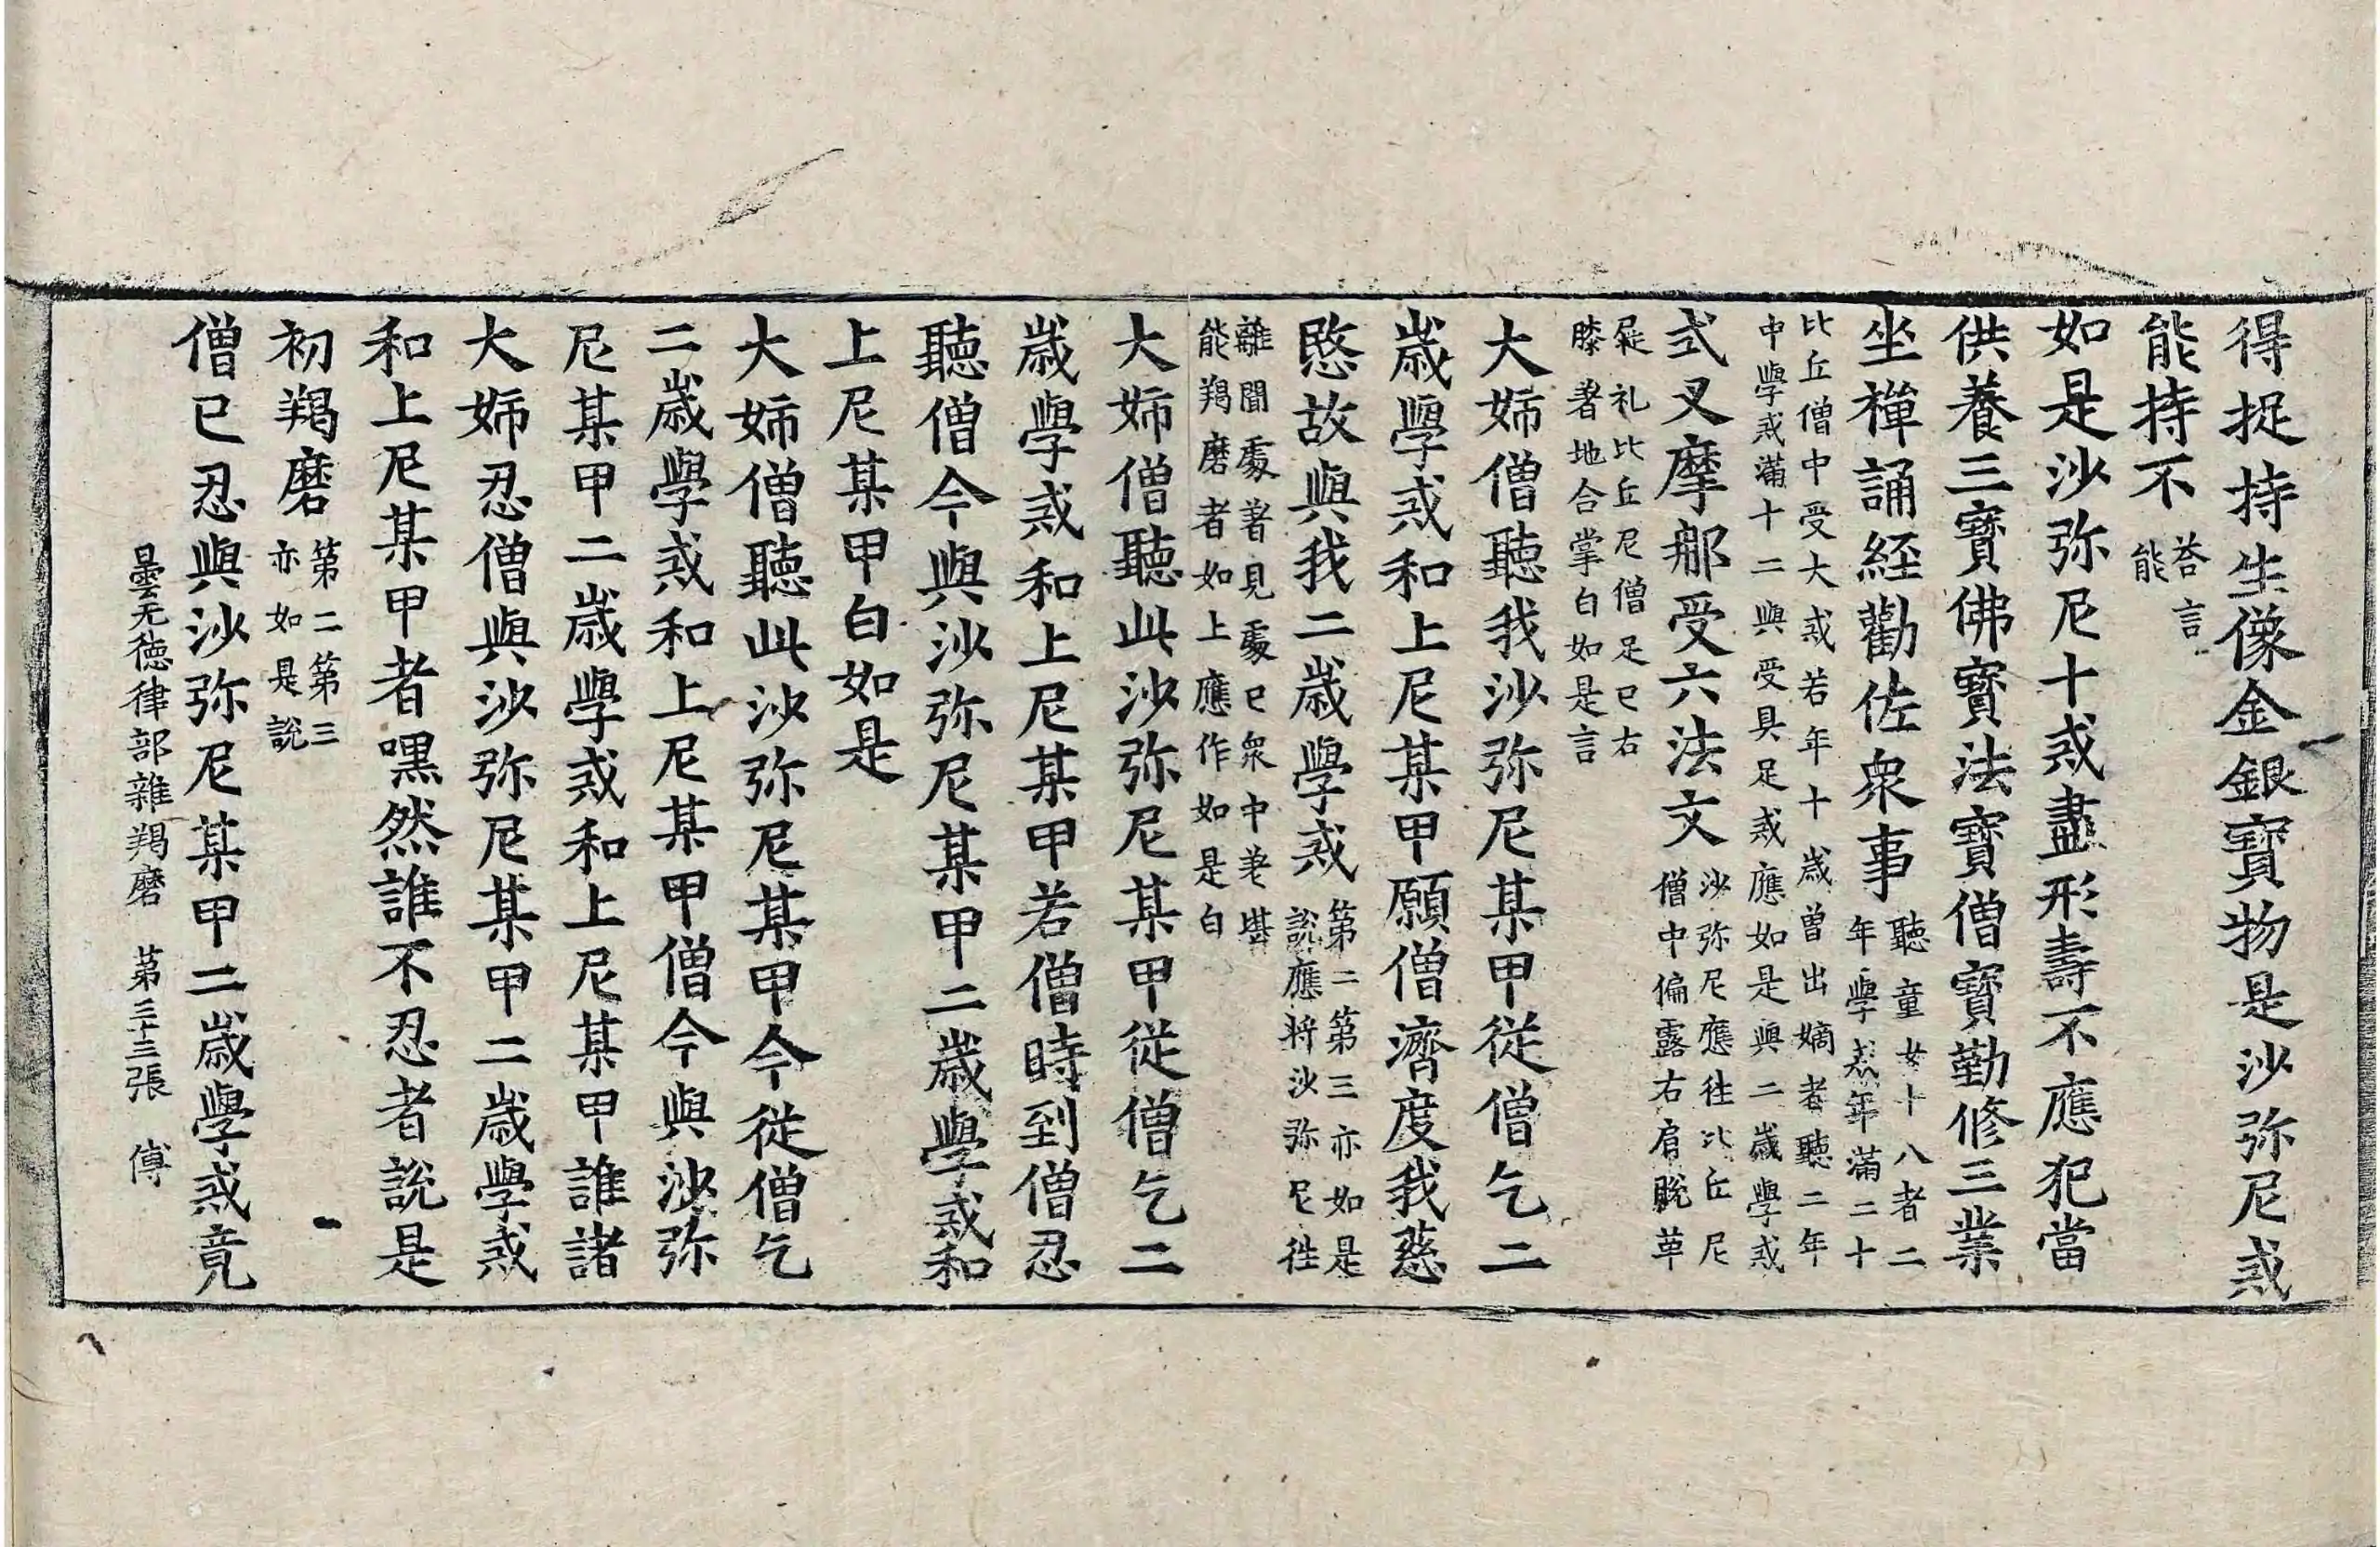 得捉持生像金銀寳物是沙弥尼戒
能持不荅言能
如是沙弥尼十戒盡形壽不應犯當
供養三寳佛寳法寳僧寳勤修三業
坐禪誦経勸佐衆事聽童女十八者二年學戒年滿二十
比丘僧中受大戒若年十歳曾出嫡者聽二年學戒
中學戒滿十二與受具足戒應如是與二歳學戒
式叉摩那受六法文沙弥尼應往比丘尼僧中偏露右肩脫革
屣礼比丘尼僧足已右
膝著地合掌白如是言
大姉僧聽我沙弥尼某甲從僧乞二
歳學戒和上尼某甲願僧濟度我慈
愍故與我二歳學戒第二第三亦如是說應將沙弥尼往
離聞處著見處已衆中差堪
能羯磨者如上應作如是白
大姉僧聽此沙弥尼某甲從僧乞二
歳學戒和上尼某甲若僧時到僧忍
聽僧今與沙弥尼某甲二歳學戒和
上尼某甲白如是
大姉僧聽此沙弥尼某甲今從僧乞
二歳學戒和上尼某甲僧今與沙弥
尼某甲二歳學戒和上尼某甲誰諸
大姉忍僧與沙弥尼某甲二歳學戒
和上尼某甲者嘿然誰不忍者說是
初羯磨第二第三亦如是說
僧已忍與沙弥尼某甲二歳學戒竟
曇无德律部雜羯磨 第三十三張 傅